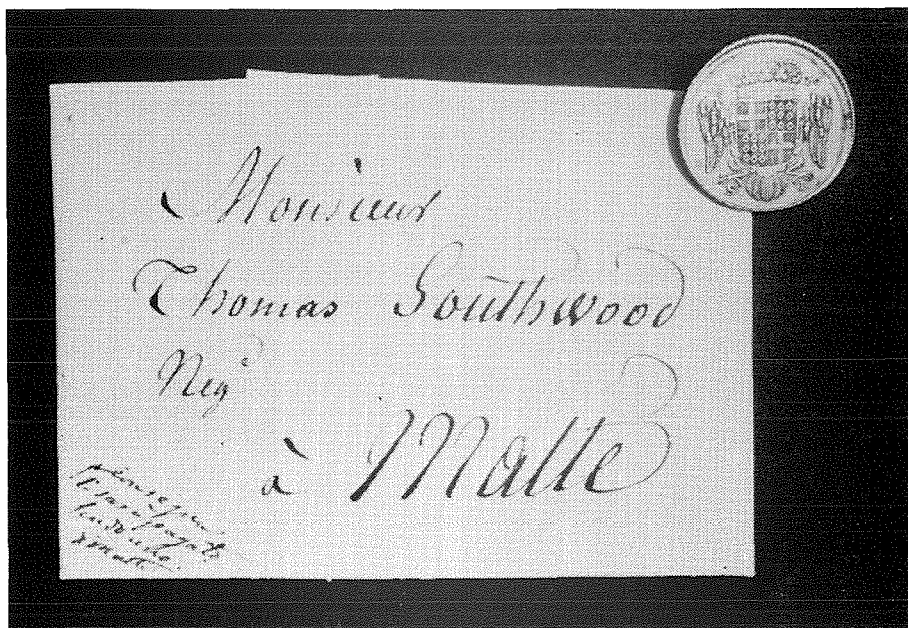 Monsieur
Thomas Southwood
Neg.t
à Malte